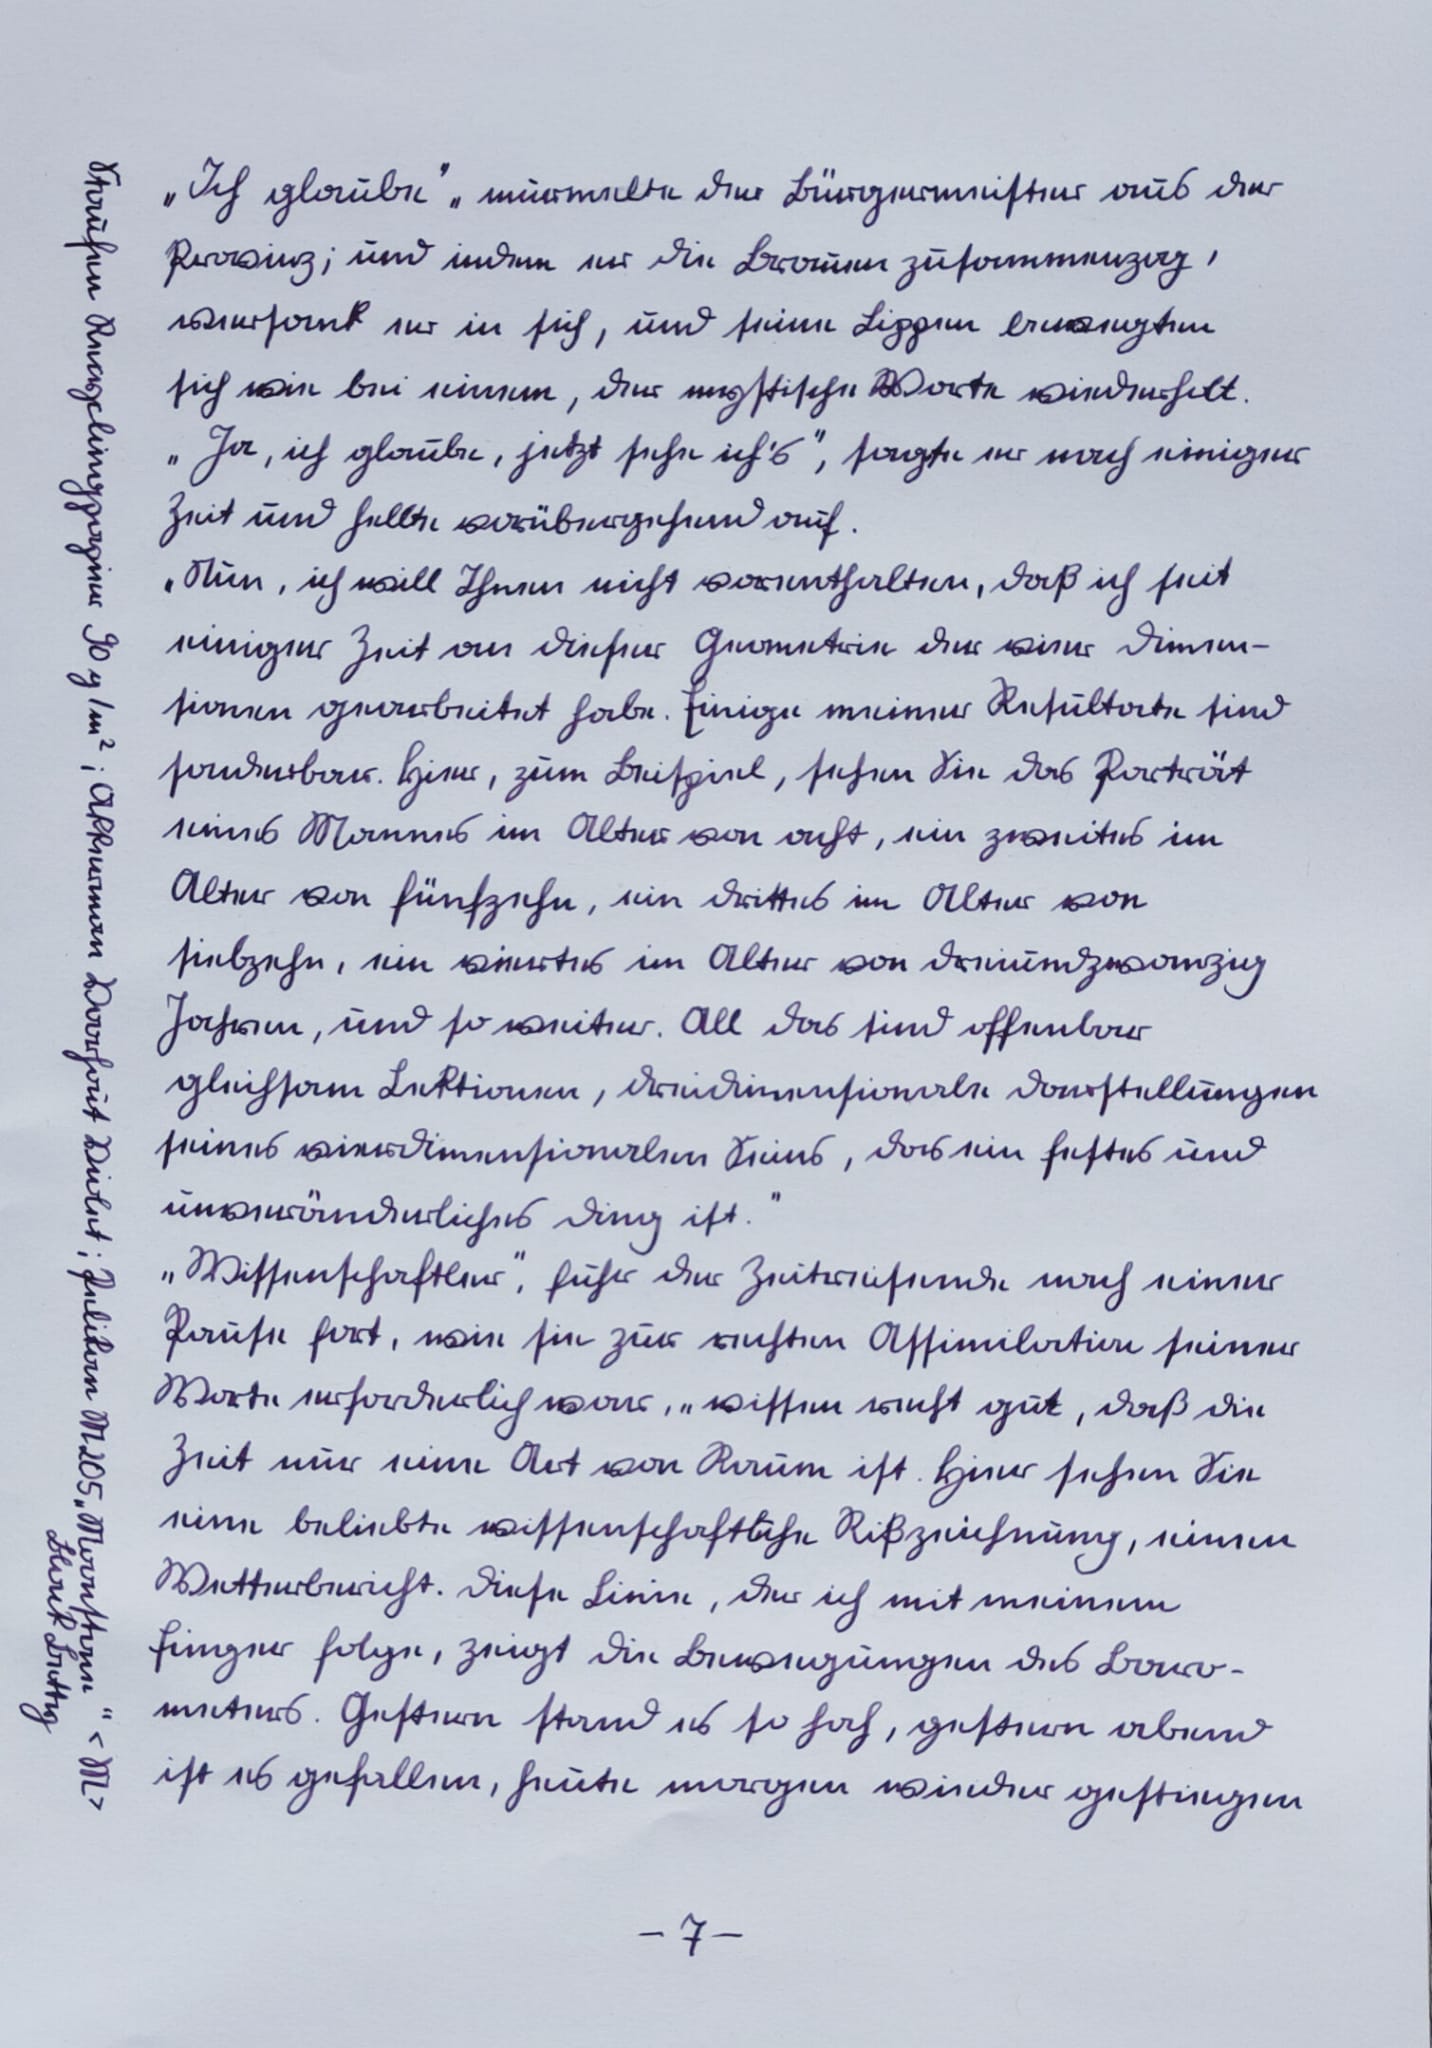 „Ich glaube", murmelte der Bürgermeister aus der
Provinz; und indem er die Brauen zusammenzog,
versank er in sich, und seine Lippen bewegten
sich wie bei einem, der mystische Worte wiederholt.
„Ja, ich glaube, jetzt sehe ich's", sagte er nach einiger
Zeit und hellte vorübergehend auf.
„Nun, ich will Ihnen nicht vorenthalten, daß ich seit
einiger Zeit an dieser Geometrie der vier Dimen-
sionen gearbeitet habe. Einige meiner Resultate sind
sonderbar. Hier, zum Beispiel, sehen Sie das Porträt
eines Mannes im Alter von acht, ein zweites im
Alter von fünfzehn, ein drittes im Alter von
siebzehn, ein viertes im Alter von dreiundzwanzig
Jahren, und so weiter. All das sind offenbar
gleichsam Lektionen, dreidimensionale Darstellungen
seines vierdimensionalen Seins, das ein festes und
unveränderliches Ding ist."
„Wissenschaftler", fuhr der Zeitreisende nach einer
Pause fort, wie sie zur rechten Assimilation seiner
Worte erforderlich war, „wissen recht gut, daß die
Zeit nur eine Art von Raum ist. Hier sehen Sie
eine beliebte wissenschaftliche Rißzeichnung, einen
Wetterbericht. Diese Linie, der ich mit meinem
Finger folge, zeigt die Bewegungen des Baro-
meters. Gestern stand es so hoch, gestern abend
ist es gefallen, heute morgen wieder gestiegen
- 7 -
Staufen Recyclingpapier 90 g/m²; Akkerman Voorhout Violet; Pelikan M205 „Moonstone" < M >